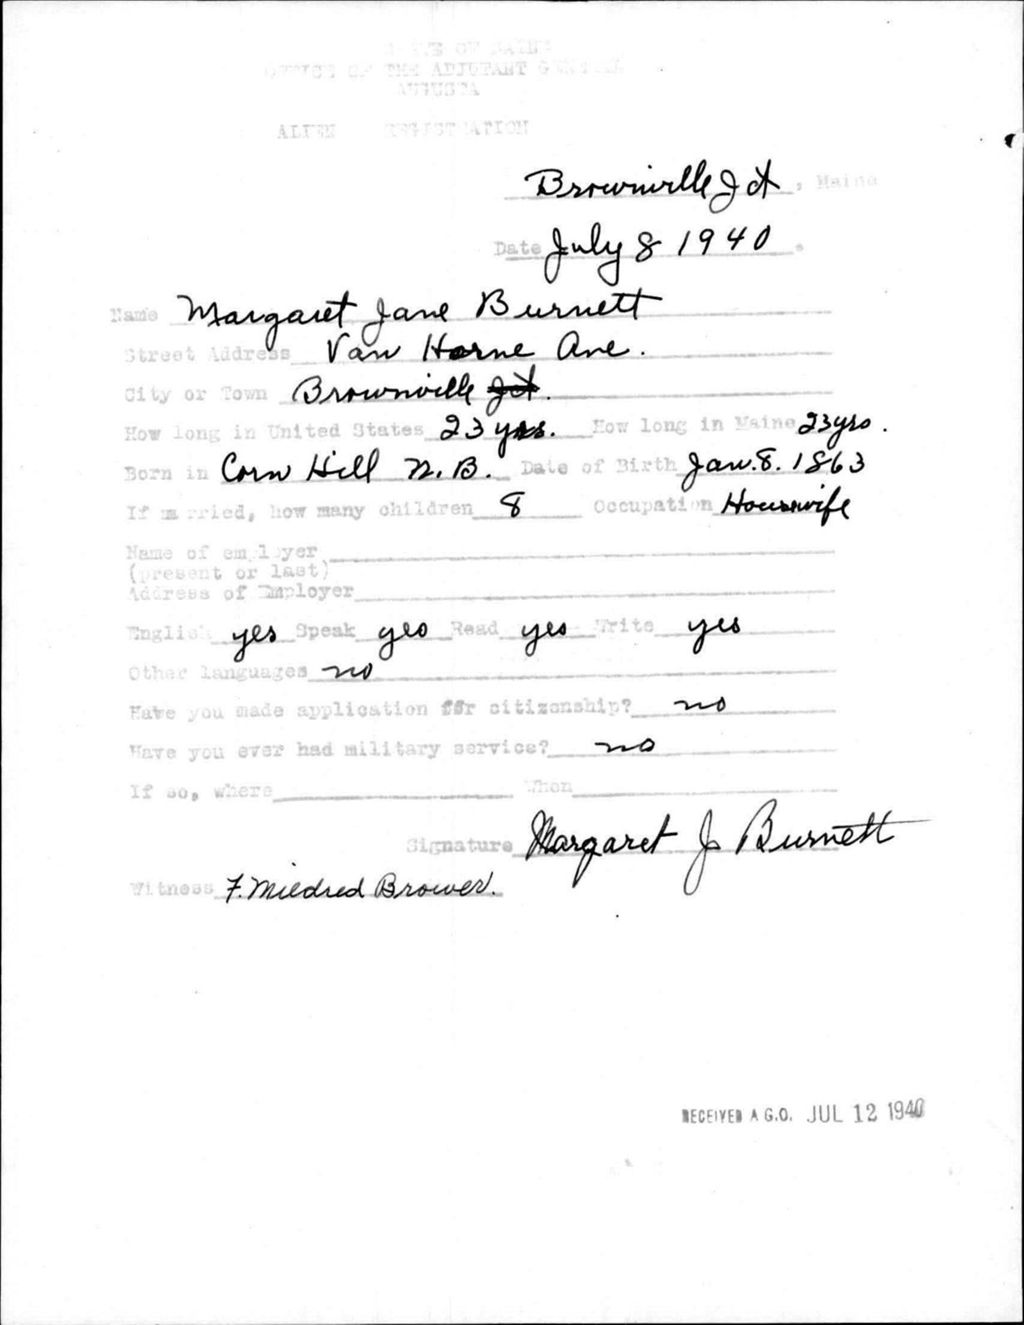 STATE OF MAINE
OFFICE OF THE ADJUTANT GENERAL
AUGUSTA
ALIEN REGISTRATION
Brownville Jct, Maine
Date July 8 1940.
Name Margaret Jane Burnett
Street Address Van Horne Ave.
City or Town Brownville Jct.
How long in United States 23 yrs. How long in Maine 23yrs.
Born in Corn Hill N.B. Date of Birth Jan. 8. 1863
If married, how many children 8 Occupation Housewife
Name of employer
(present or last)
Address of Employer
English yes Speak yes Read yes Write yes
Other languages no
Have you made application for citizenship? no
Have you ever had military service? no
If so, where When
Signature Margaret J Burnett
Witness F. Mildred Brower.
RECEIVED A.G.O. JUL 12 1940